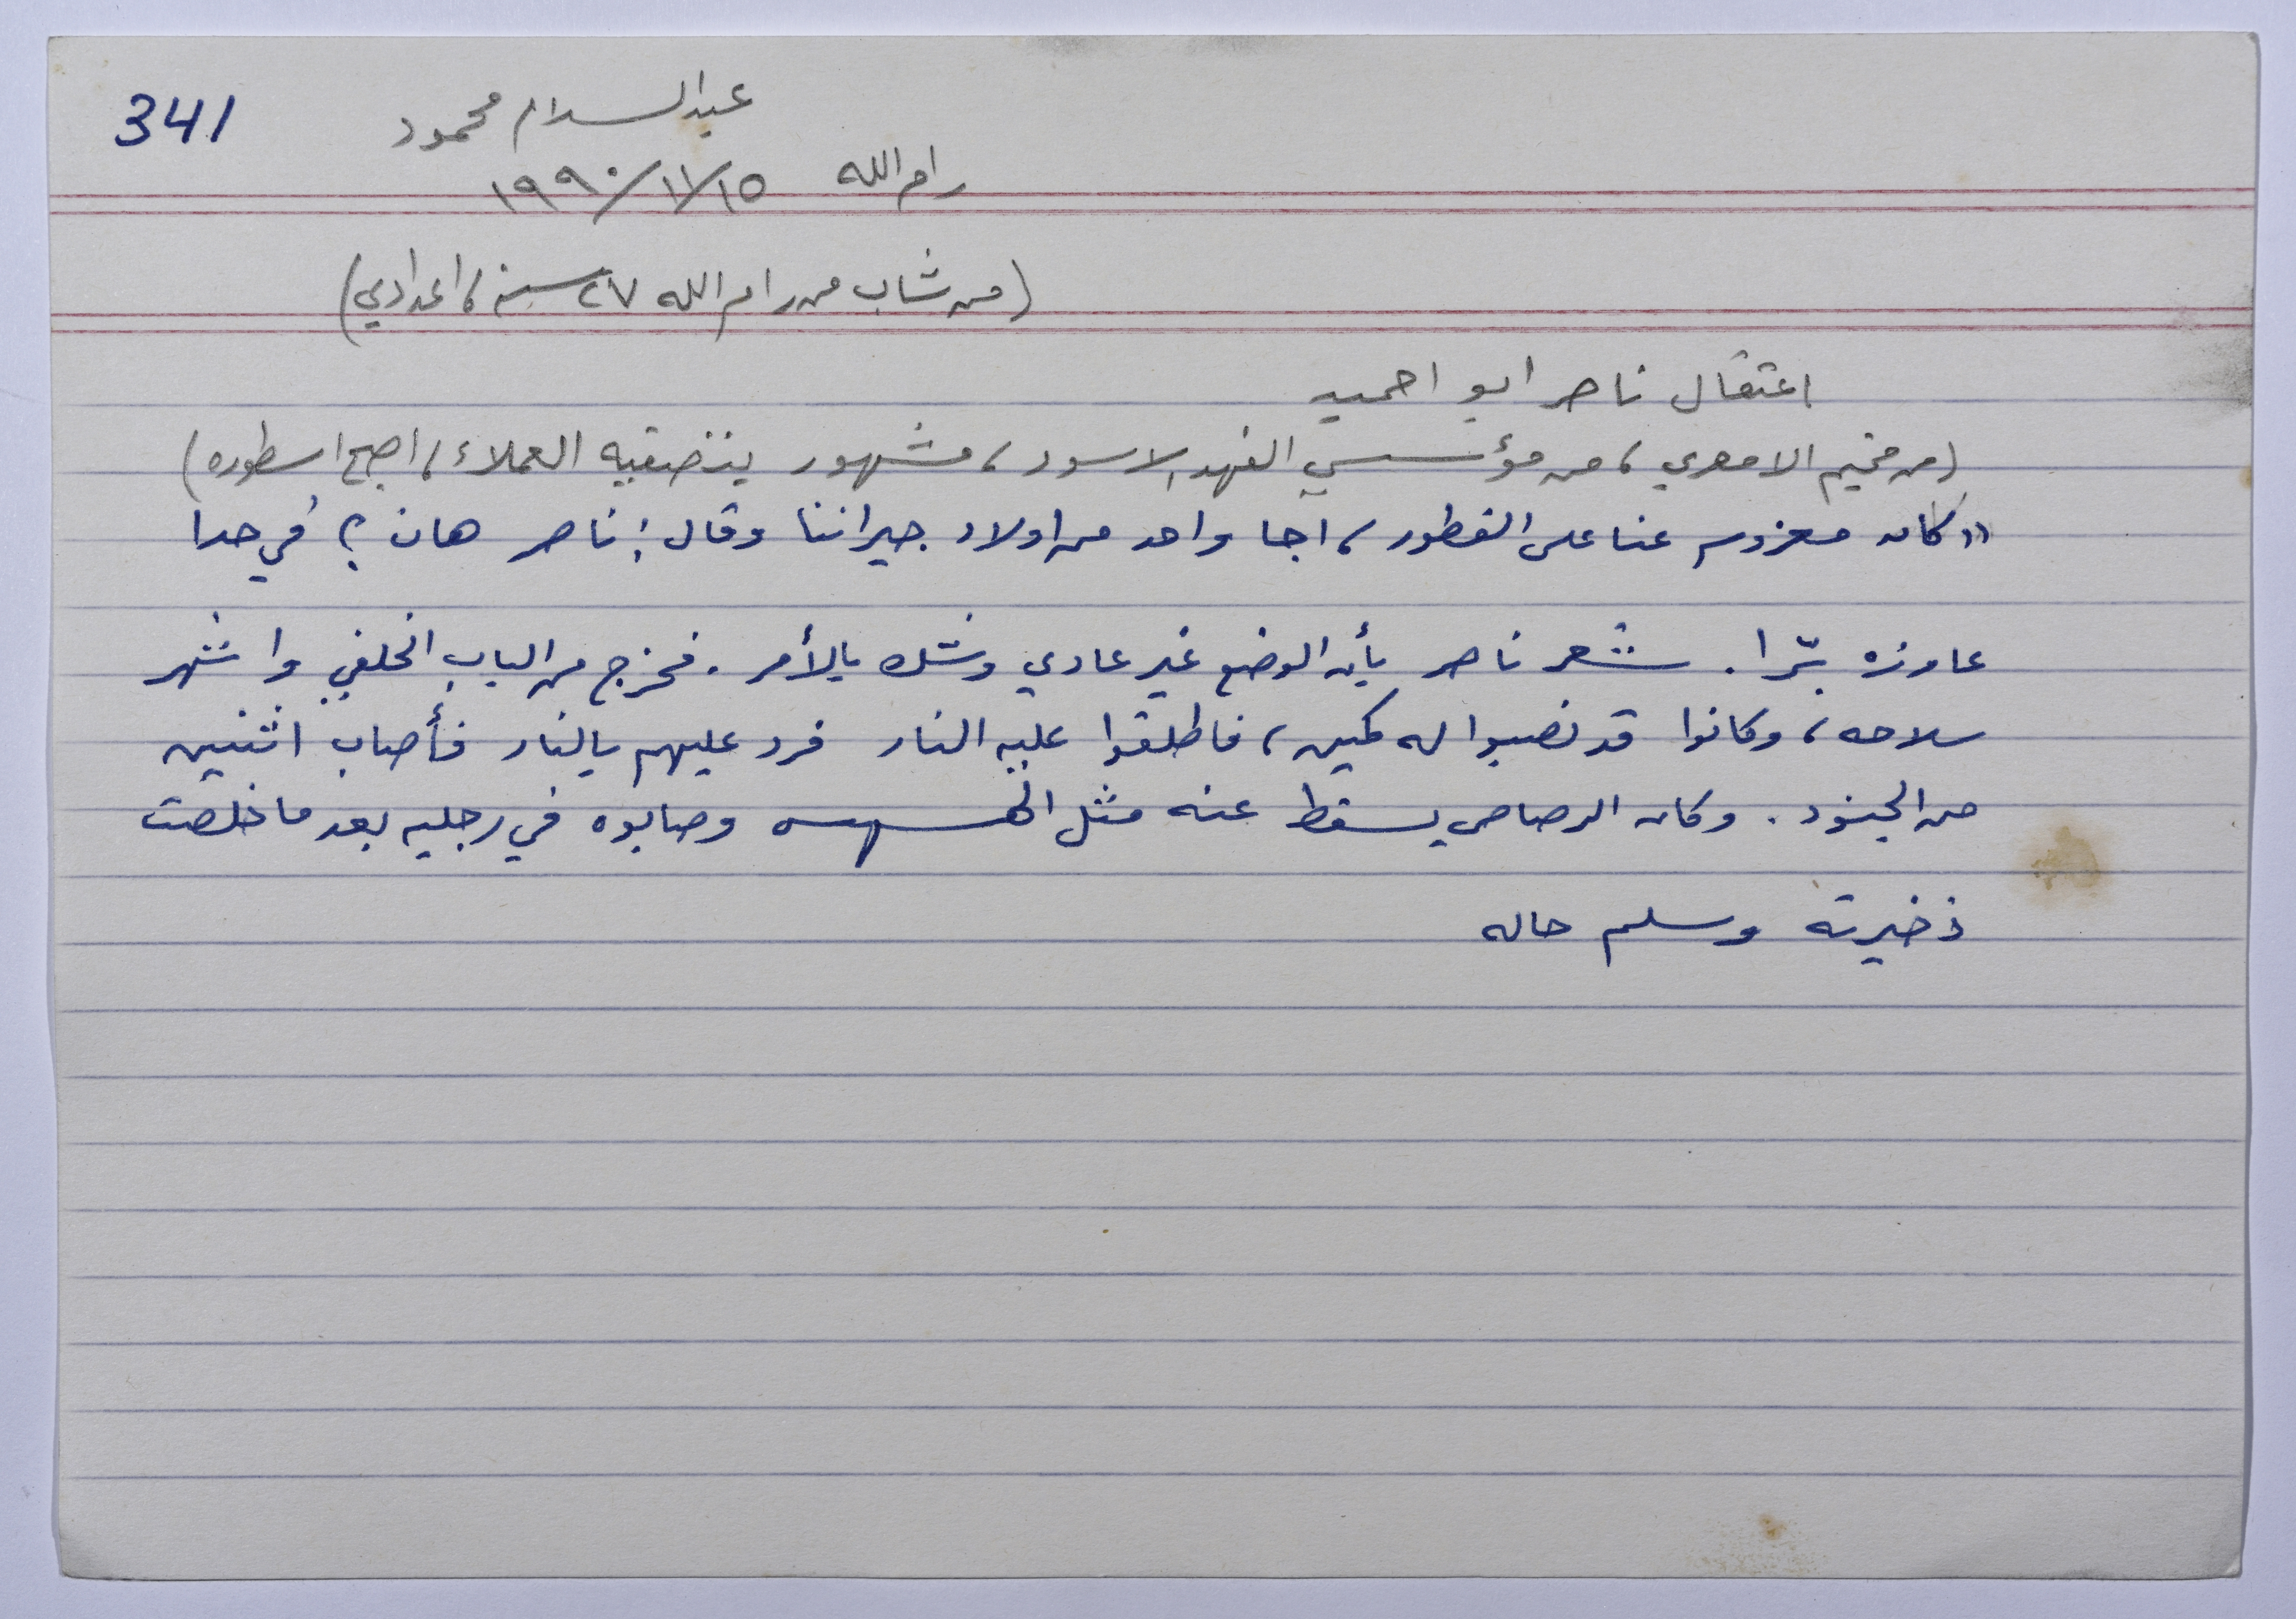 341
عبد السلام محمود
رام الله ١٩٩٠/١١/١٥
(من شاب من رام الله ٢٧ سنة، اعدادي)
اعتقال ناصر ابو احميد
(من مخيم الامعري، من مؤسسي الفهد الاسود، مشهور بتصفية العملاء، اصبح اسطوره)
"كان معزوم عنا على الفطور، اجا واحد من اولاد جيراننا وقال: ناصر هان؟ في حدا
عاوزه برّا. شعر ناصر بأن الوضع غير عادي وشك بالأمر. فخرج من الباب الخلفي واشهر
سلاحه، وكانوا قد نصبوا له كمين، فاطلقوا عليه النار فرد عليهم بالنار فأصاب اثنين
من الجنود. وكان الرصاص يسقط عنه مثل وصابوه في رجليه بعد ما خلصت
ذخيرته وسلم حاله